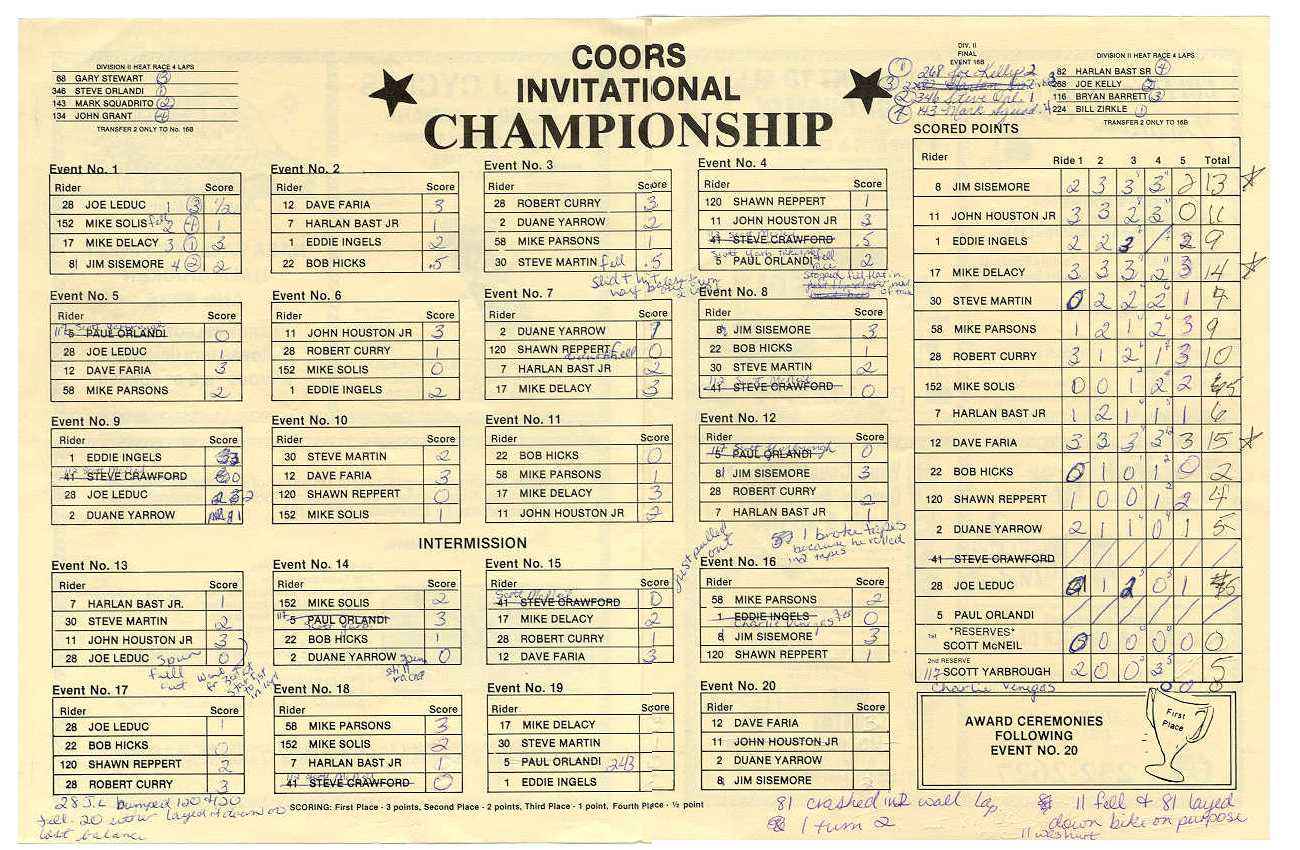 COORS
INVITATIONAL
CHAMPIONSHIP
DIVISION II HEAT RACE 4 LAPS
68 GARY STEWART 3
346 STEVE ORLANDI 1
143 MARK SQUADRITO 2
134 JOHN GRANT 4
TRANSFER 2 ONLY TO No. 16B
DIV. II
FINAL
EVENT 16B
1 268 Joe Kelly 2
3
2 346 Steve Orl. 1
4 143 Mark Squad. 4
DIVISION II HEAT RACE 4 LAPS
82 HARLAN BAST SR 4
268 JOE KELLY 2
116 BRYAN BARRETT 3
224 BILL ZIRKLE 1
TRANSFER 2 ONLY TO 16B
Event No. 1
Rider Score
28 JOE LEDUC 1 3 1/2
152 MIKE SOLIS fell 2 4 1
17 MIKE DELACY 3 1 3
8 JIM SISEMORE 4 2 2
Event No. 2
Rider Score
12 DAVE FARIA 3
7 HARLAN BAST JR 1
1 EDDIE INGELS 2
22 BOB HICKS .5
Event No. 3
Rider Score
28 ROBERT CURRY 3
2 DUANE YARROW 2
58 MIKE PARSONS 1
30 STEVE MARTIN fell .5
Event No. 4
Rider Score
120 SHAWN REPPERT 1
11 JOHN HOUSTON JR 3
41 STEVE CRAWFORD .5
5 PAUL ORLANDI fell 2
Event No. 5
Rider Score
5 PAUL ORLANDI 0
28 JOE LEDUC 1
12 DAVE FARIA 3
58 MIKE PARSONS 2
Event No. 6
Rider Score
11 JOHN HOUSTON JR 3
28 ROBERT CURRY 1
152 MIKE SOLIS 0
1 EDDIE INGELS 2
Event No. 7
Rider Score
2 DUANE YARROW 1
120 SHAWN REPPERT fell 0
7 HARLAN BAST JR 2
17 MIKE DELACY 3
Event No. 8
Rider Score
8 JIM SISEMORE 3
22 BOB HICKS 1
30 STEVE MARTIN 2
41 STEVE CRAWFORD 0
Event No. 9
Rider Score
1 EDDIE INGELS 3
41 STEVE CRAWFORD 0
28 JOE LEDUC 2
2 DUANE YARROW 1
Event No. 10
Rider Score
30 STEVE MARTIN 2
12 DAVE FARIA 3
120 SHAWN REPPERT 0
152 MIKE SOLIS 1
Event No. 11
Rider Score
22 BOB HICKS 0
58 MIKE PARSONS 1
17 MIKE DELACY 3
11 JOHN HOUSTON JR 2
Event No. 12
Rider Score
117 Scott Yarbrough
5 PAUL ORLANDI 0
8 JIM SISEMORE 3
28 ROBERT CURRY 2
7 HARLAN BAST JR 1
INTERMISSION
just pulled out
1 broke tapes
because he rolled
in2 tapes
Event No. 13
Rider Score
7 HARLAN BAST JR. 1
30 STEVE MARTIN 2
11 JOHN HOUSTON JR 3
28 JOE LEDUC 0
Event No. 14
Rider Score
152 MIKE SOLIS 2
117
5 PAUL ORLANDI 3
22 BOB HICKS 1
2 DUANE YARROW 0
Event No. 15
Rider Score
Scott McNeil
41 STEVE CRAWFORD 0
17 MIKE DELACY 2
28 ROBERT CURRY 1
12 DAVE FARIA 3
Event No. 16
Rider Score
58 MIKE PARSONS 2
1 EDDIE INGELS 0
Charlie Venegas
8 JIM SISEMORE 3
120 SHAWN REPPERT 1
Event No. 17
Rider Score
28 JOE LEDUC 1
22 BOB HICKS 0
120 SHAWN REPPERT 2
28 ROBERT CURRY 3
Event No. 18
Rider Score
58 MIKE PARSONS 3
152 MIKE SOLIS 2
7 HARLAN BAST JR 1
41 STEVE CRAWFORD 0
Event No. 19
Rider Score
17 MIKE DELACY
30 STEVE MARTIN
5 PAUL ORLANDI
1 EDDIE INGELS
Event No. 20
Rider Score
12 DAVE FARIA
11 JOHN HOUSTON JR
2 DUANE YARROW
8 JIM SISEMORE
SCORED POINTS
Rider Ride 1 2 3 4 5 Total
8 JIM SISEMORE 2 3 3 3 2 13
11 JOHN HOUSTON JR 3 3 2 3 0 11
1 EDDIE INGELS 2 2 3 / 2 9
17 MIKE DELACY 3 3 3 2 3 14
30 STEVE MARTIN 0 2 2 2 1 7
58 MIKE PARSONS 1 2 1 2 3 9
28 ROBERT CURRY 3 1 2 1 3 10
152 MIKE SOLIS 0 0 1 2 2 5
7 HARLAN BAST JR 1 2 1 1 1 6
12 DAVE FARIA 3 3 3 3 3 15
22 BOB HICKS 0 1 0 1 0 2
120 SHAWN REPPERT 1 0 0 1 2 4
2 DUANE YARROW 2 1 1 0 1 5
41 STEVE CRAWFORD
28 JOE LEDUC 0 1 2 0 1 5
5 PAUL ORLANDI
*RESERVES*
1st SCOTT McNEIL 0 0 0 0 0 0
2ND RESERVE
117 SCOTT YARBROUGH 2 0 0 3 5
Charlie Venegas 0 0 0
AWARD CEREMONIES
FOLLOWING
EVENT NO. 20
First
Place
SCORING: First Place - 3 points, Second Place - 2 points, Third Place - 1 point, Fourth Place - ½ point
28 J.L bumped 120
lost balance
81 crashed in2 wall lap
1 turn 2
11 fell & 81 layed
down bike on purpose